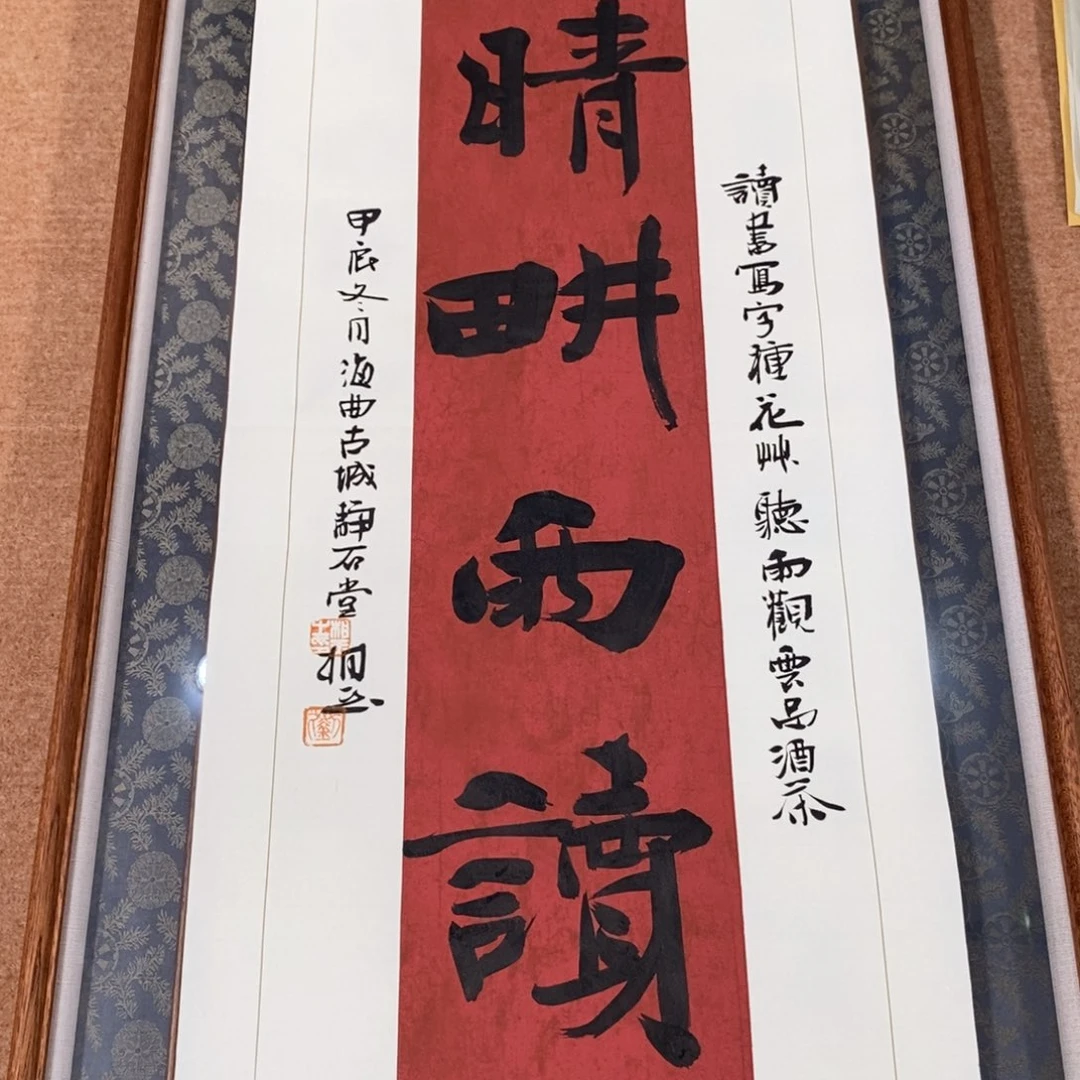 讀書寫字種花艸聽雨觀雲品酒茶
晴畊雨讀
甲辰冬月海曲古城靜石堂